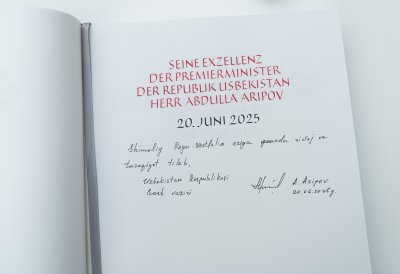 SEINE EXZELLENZ
DER PREMIERMINISTER
DER REPUBLIK USBEKISTAN
HERR ABDULLA ARIPOV
20. JUNI 2025
Shimoliy Reyn-Vestfalia ravnaq rivoj va
taraqqiyot tilab,
Uzbekistan Respublikasi
Bosh vaziri
A. Aripov
20.06.2025 y.